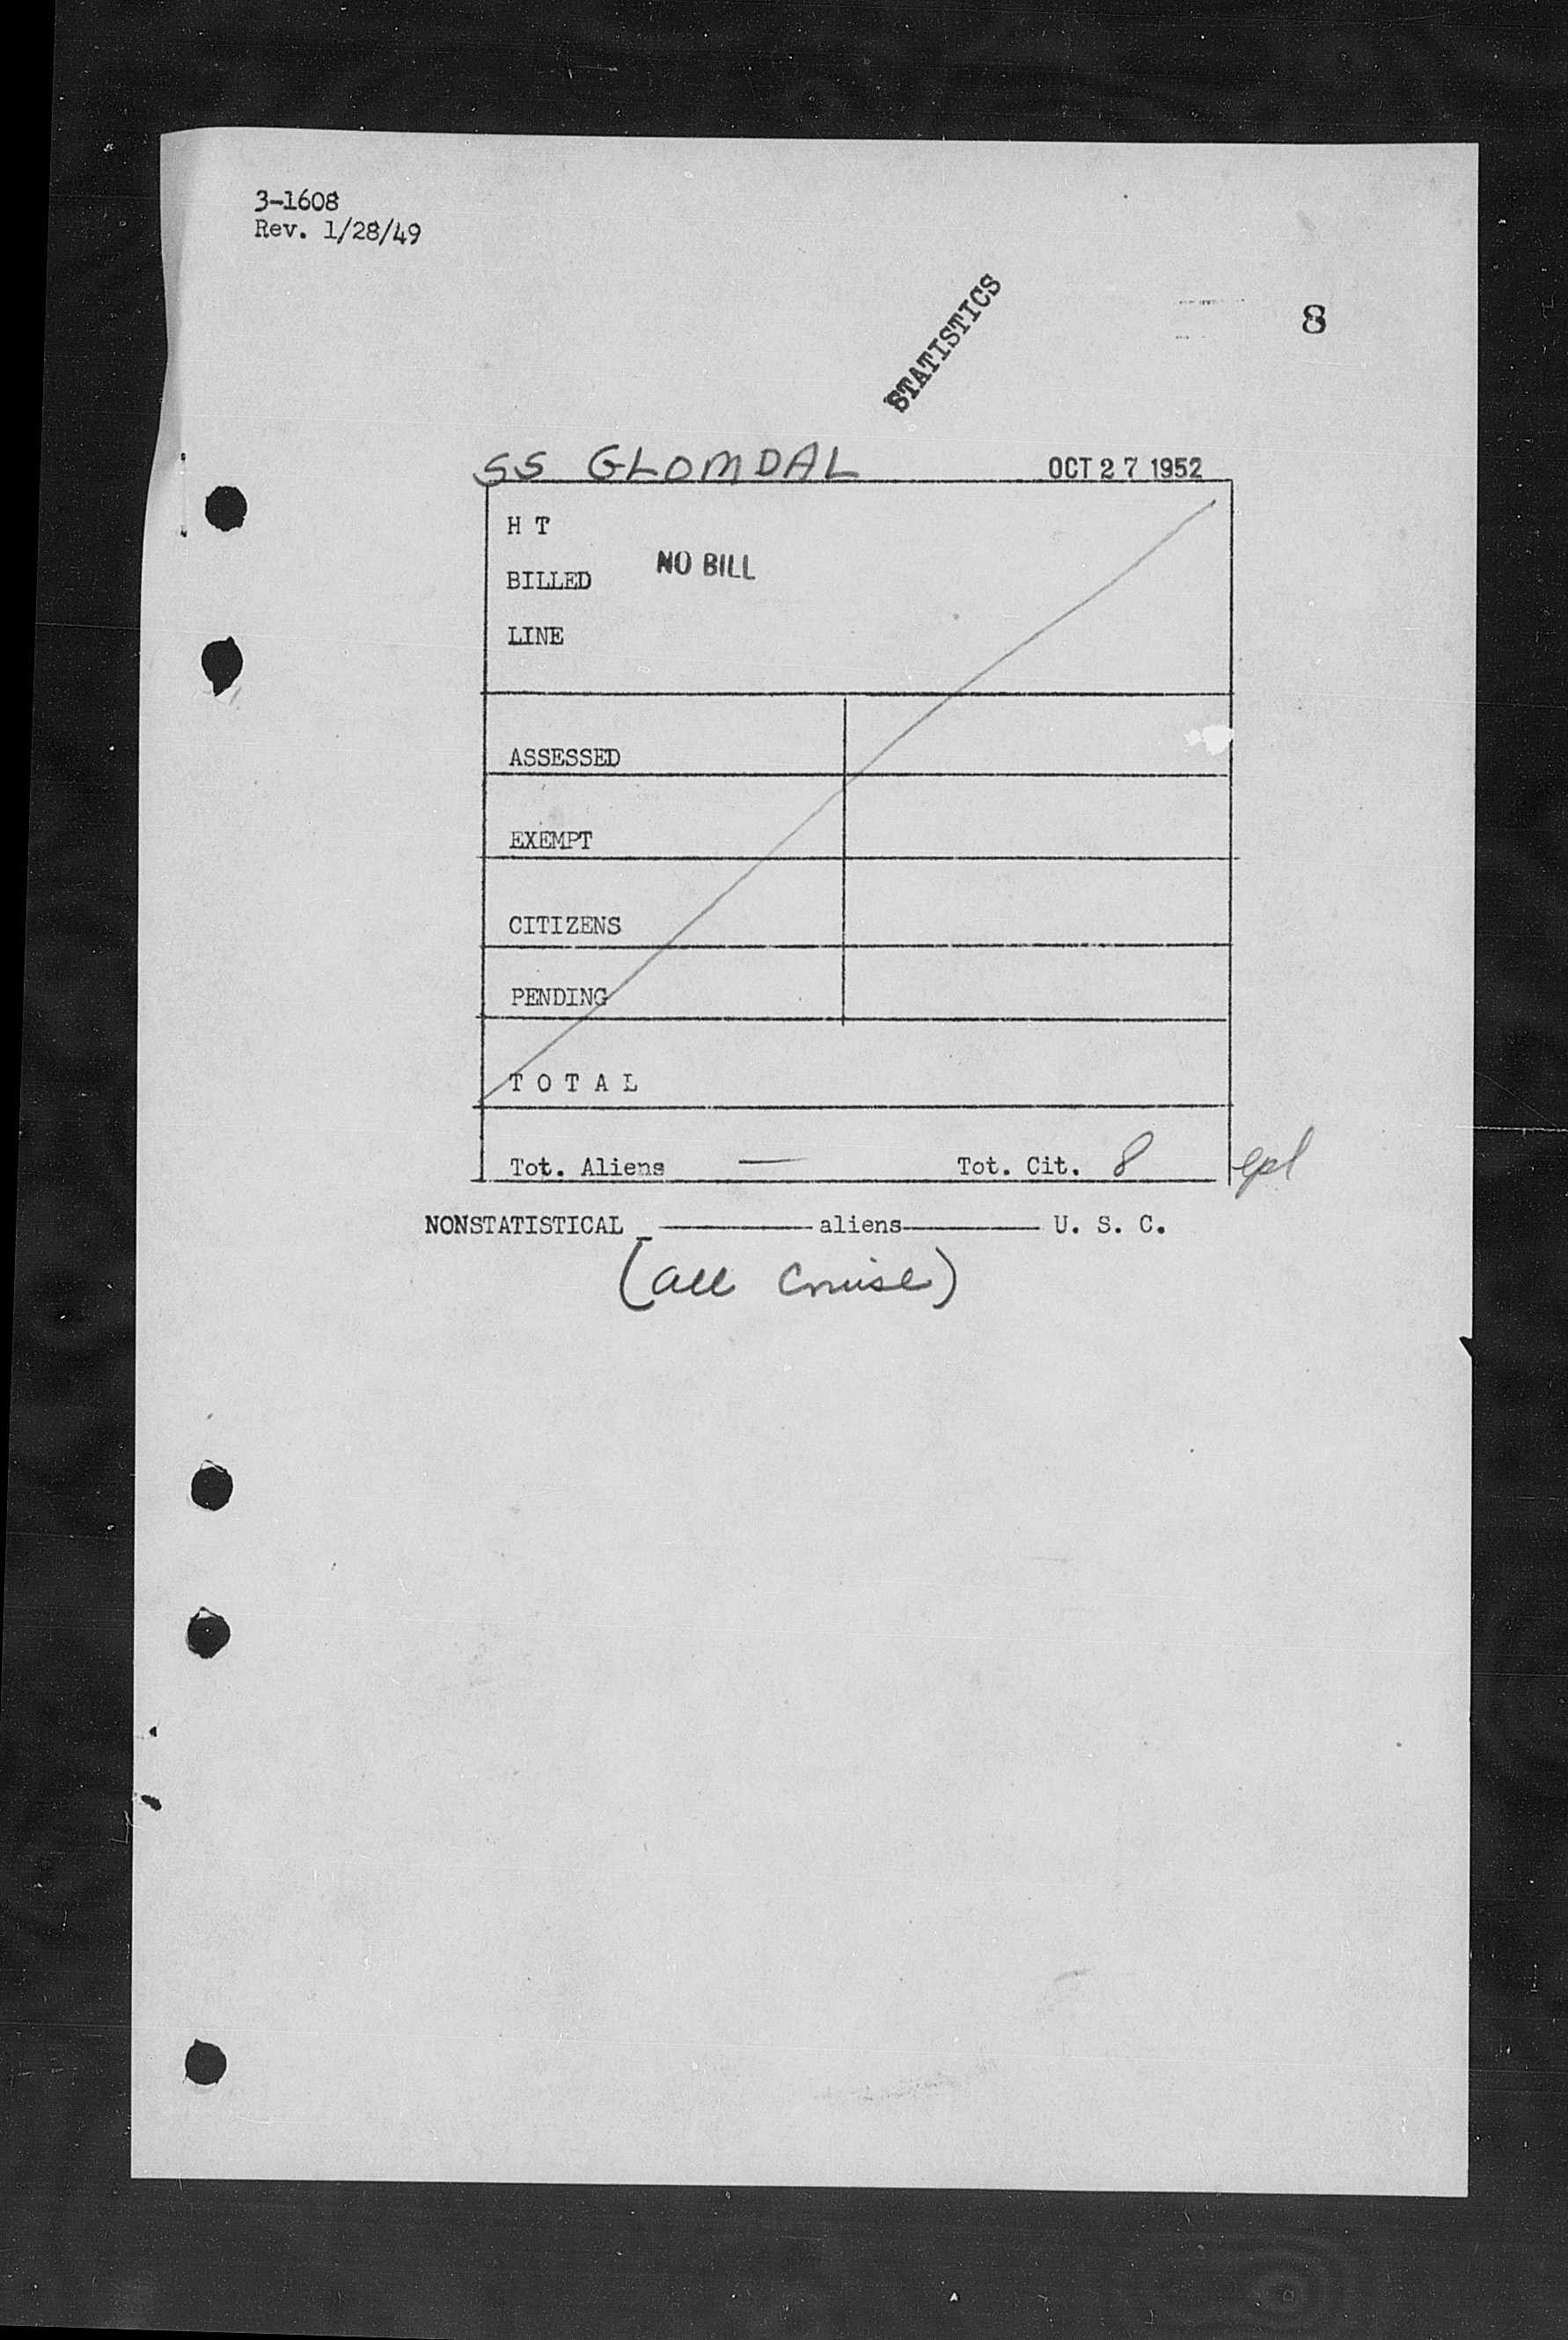 3-1608
Rev. 1/28/49
STATISTICS
8
SS GLOMDAL OCT 27 1952
H T
NO BILL
BILLED
LINE
ASSESSED
EXEMPT
CITIZENS
PENDING
T O T A L
Tot. Aliens — Tot. Cit. 8
NONSTATISTICAL ———— aliens ———— U. S. C.
(all Cruise)